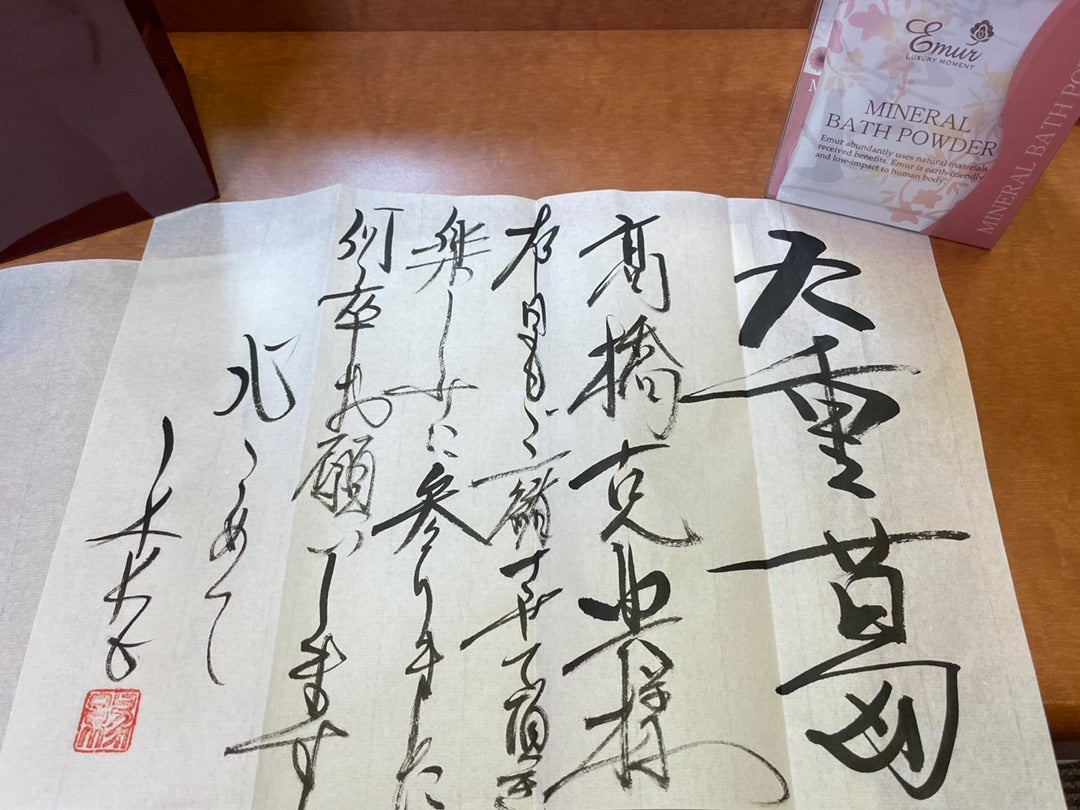 Emur
LUXURY MOMENT
MINERAL
BATH POWDER
Emur abundantly uses natural materials
received benefits. Emur is earth-friendly
and low-impact to human body.
MINERAL BATH PO
九重葛
高橋克典様
本日もご一緒させて頂き
楽しみに参りました
何卒お願いします
心こめて